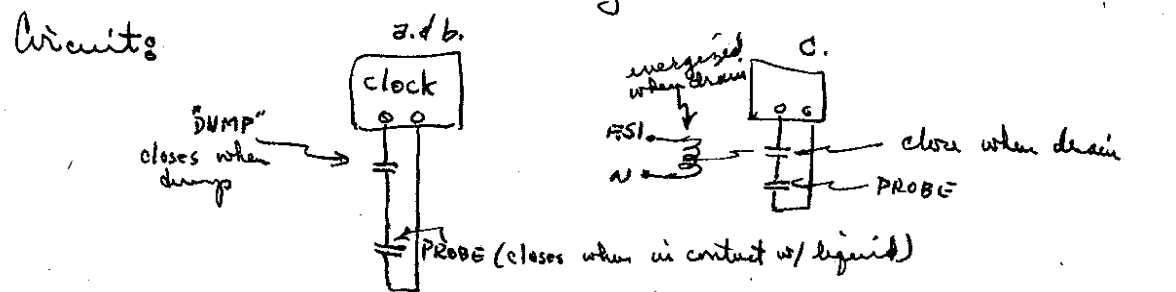 Circuit:
a. & b.
clock
"DUMP"
closes when
dumps
PROBE (closes when in contact w/ liquid)
c.
energized
when drain
FS1
N
close when drain
PROBE